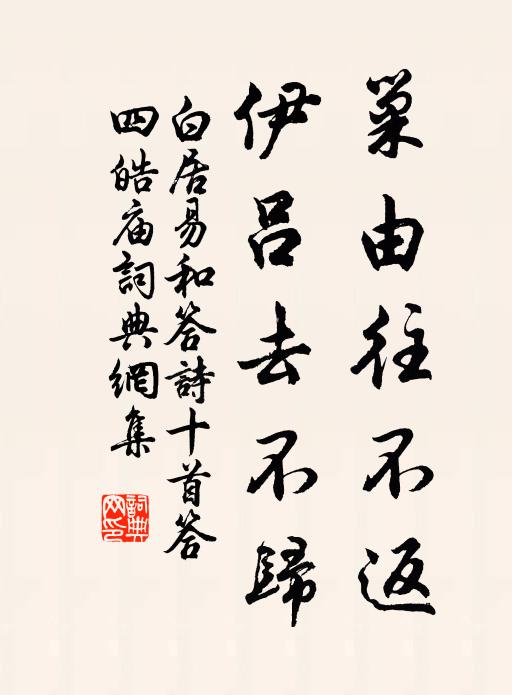 巢由往不返
伊呂去不歸
白居易和答詩十首答
四皓庙詞典網集
詞典
网印